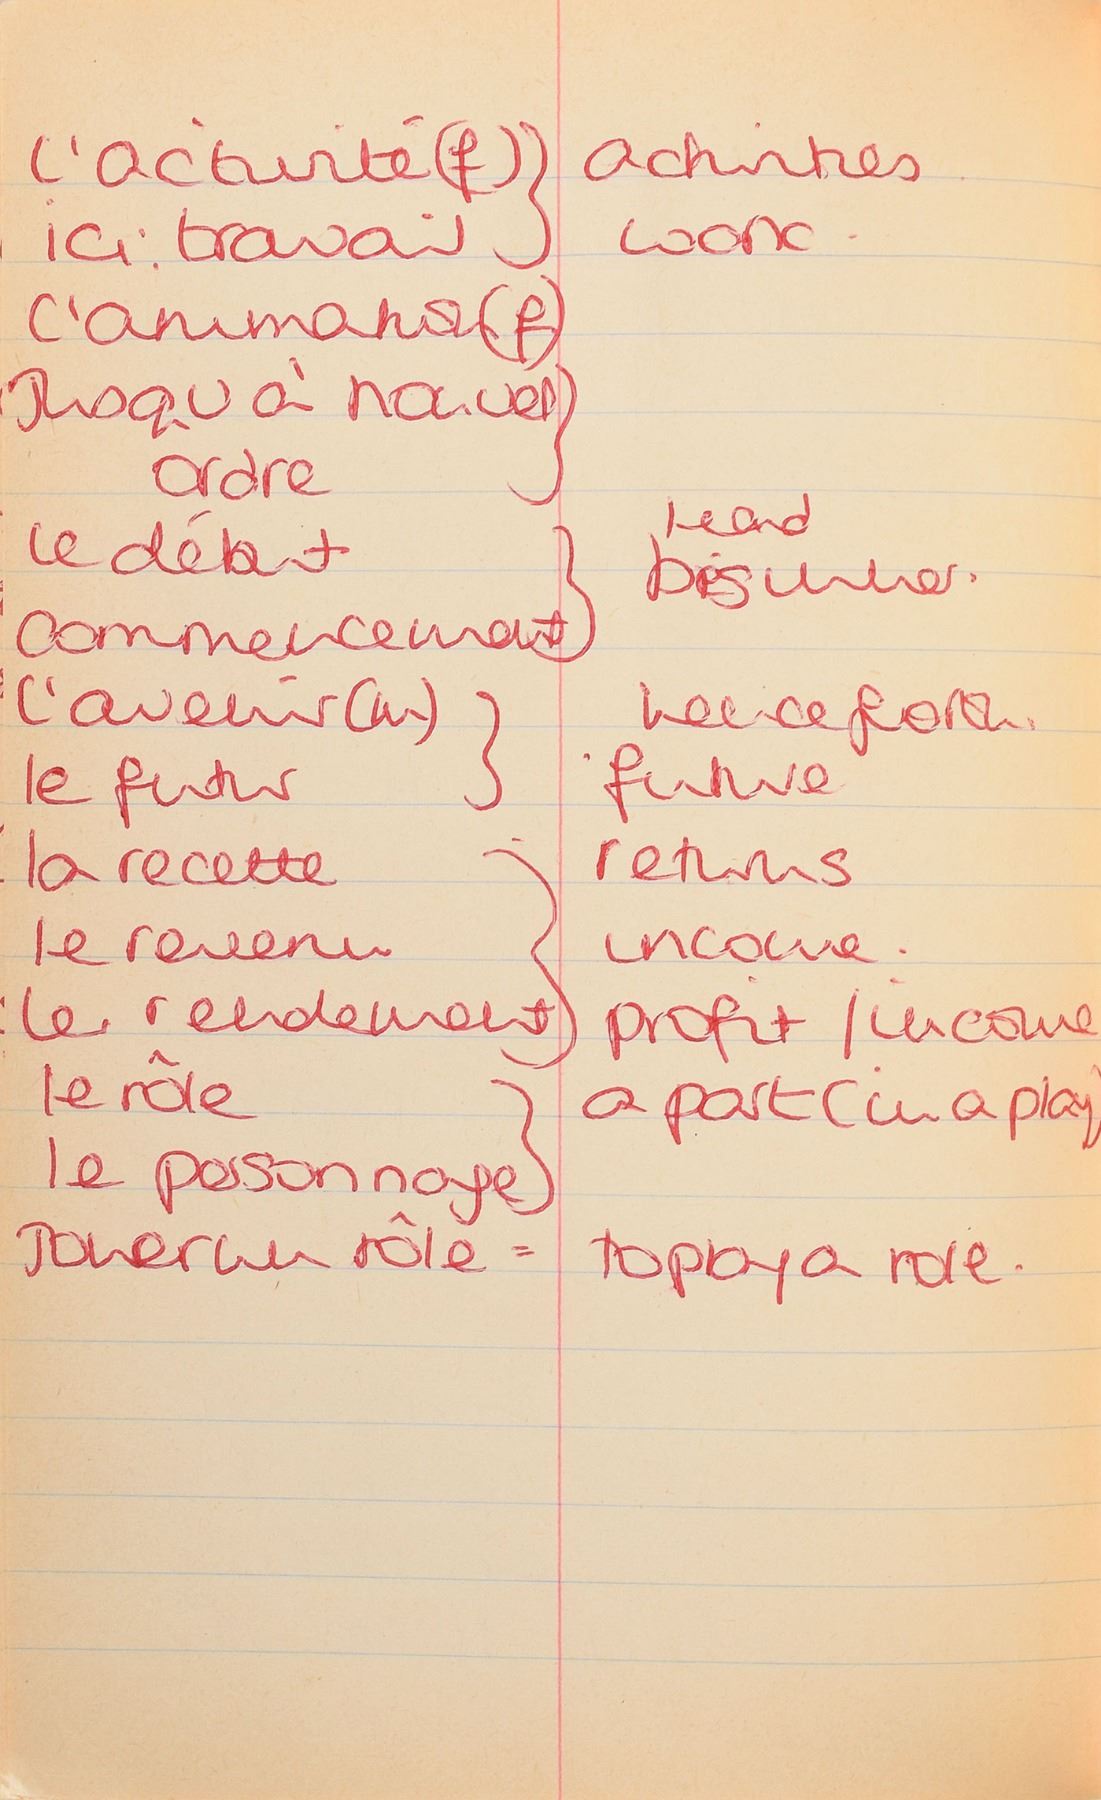 l'activité (f) } activities
ici: travail } work.
l'animatio (f)
Jusqu'à nouvel }
ordre
head
le début }
beginner.
commencement
l'avenir (m) } henceforth.
le futur } future
la recette } returns
le revenu } income.
le rendement } profit / income
le rôle } a part (in a play)
le personnage }
Jouer un rôle = to play a role.